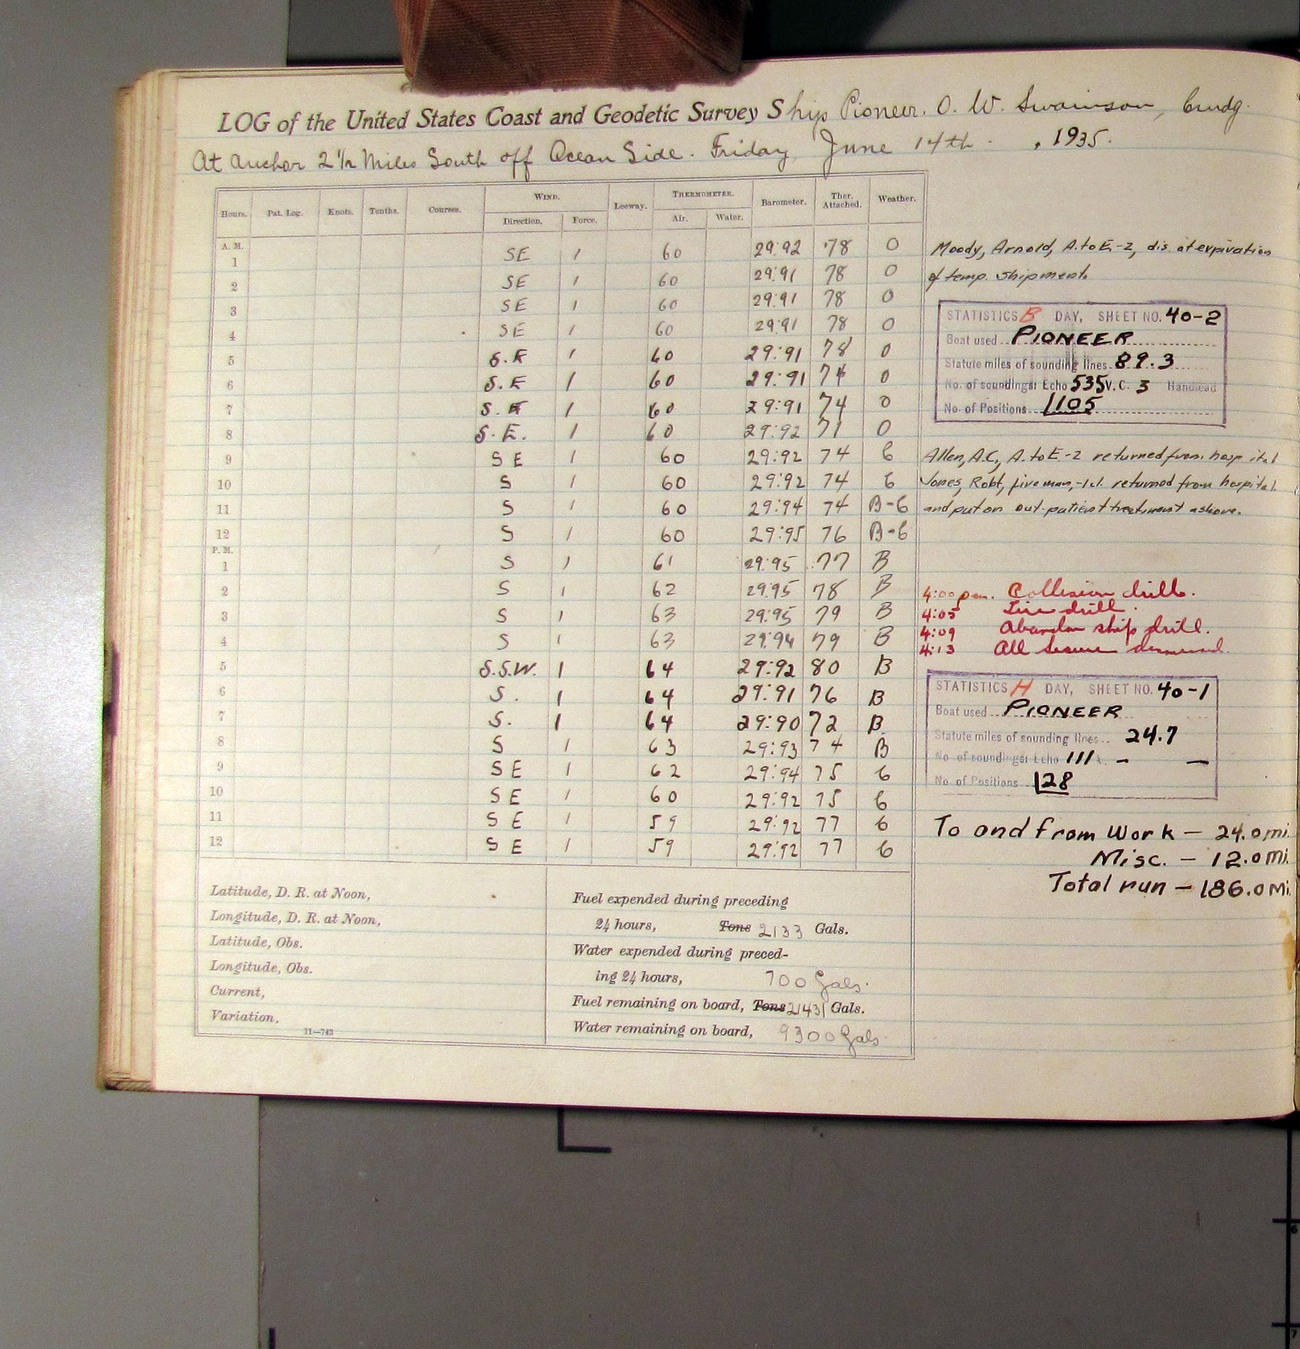 LOG of the United States Coast and Geodetic Survey Ship Pioneer. O. W. Swainson, Cmdg.
At anchor 2 1/2 Miles South off Ocean Side. Friday, June 14th. , 1935.
Hours. Pat. Log. Knots. Tenths. Courses. WIND. Direction. Force. Leeway. THERMOMETER. Air. Water. Barometer. Ther. Attached. Weather.
A. M.
1 SE 1 60 29:92 78 O
2 SE 1 60 29:91 78 O
3 SE 1 60 29:91 78 O
4 SE 1 60 29:91 78 O
5 S.E 1 60 29:91 78 O
6 S.E 1 60 29:91 74 O
7 S.E 1 60 29:91 74 O
8 S.E. 1 60 29:92 71 O
9 SE 1 60 29:92 74 C
10 S 1 60 29:92 74 C
11 S 1 60 29:94 74 B-C
12 S 1 60 29:95 76 B-C
P. M.
1 S 1 61 29:95 77 B
2 S 1 62 29:95 78 B
3 S 1 63 29:95 79 B
4 S 1 63 29:94 79 B
5 S.S.W. 1 64 29:92 80 B
6 S. 1 64 29:91 76 B
7 S. 1 64 29:90 72 B
8 S 1 63 29:93 74 B
9 SE 1 62 29:94 75 C
10 SE 1 60 29:92 75 C
11 SE 1 59 29:92 77 C
12 SE 1 59 29:92 77 C
Moody, Arnold, A. to E-2, dis. at expiration
of temp. shipment.
STATISTICS B DAY, SHEET NO. 40-2
Boat used PIONEER
Statute miles of sounding lines 89.3
No. of soundings: Echo 535 V.C. 3 Handlead
No. of Positions 1105
Allen, A.C, A. to E-2 returned from hospital
Jones, Robt, fireman,-1cl. returned from hospital
and put on out-patient treatment ashore.
4:00 pm. Collision drill.
4:05 Fire drill.
4:09 Abandon ship drill.
4:13 All secure dismissed.
STATISTICS H DAY, SHEET NO. 40-1
Boat used PIONEER
Statute miles of sounding lines 24.7
No. of soundings: Echo 111 - -
No. of Positions 128
To and from Work — 24.0 mi.
Misc. — 12.0 Mi.
Total run — 186.0 Mi.
Latitude, D. R. at Noon,
Longitude, D. R. at Noon,
Latitude, Obs.
Longitude, Obs.
Current,
Variation.
11—743
Fuel expended during preceding
24 hours, Tons 2133 Gals.
Water expended during preced-
ing 24 hours, 700 Gals.
Fuel remaining on board, Tons 21431 Gals.
Water remaining on board, 9300 Gals.
6
7